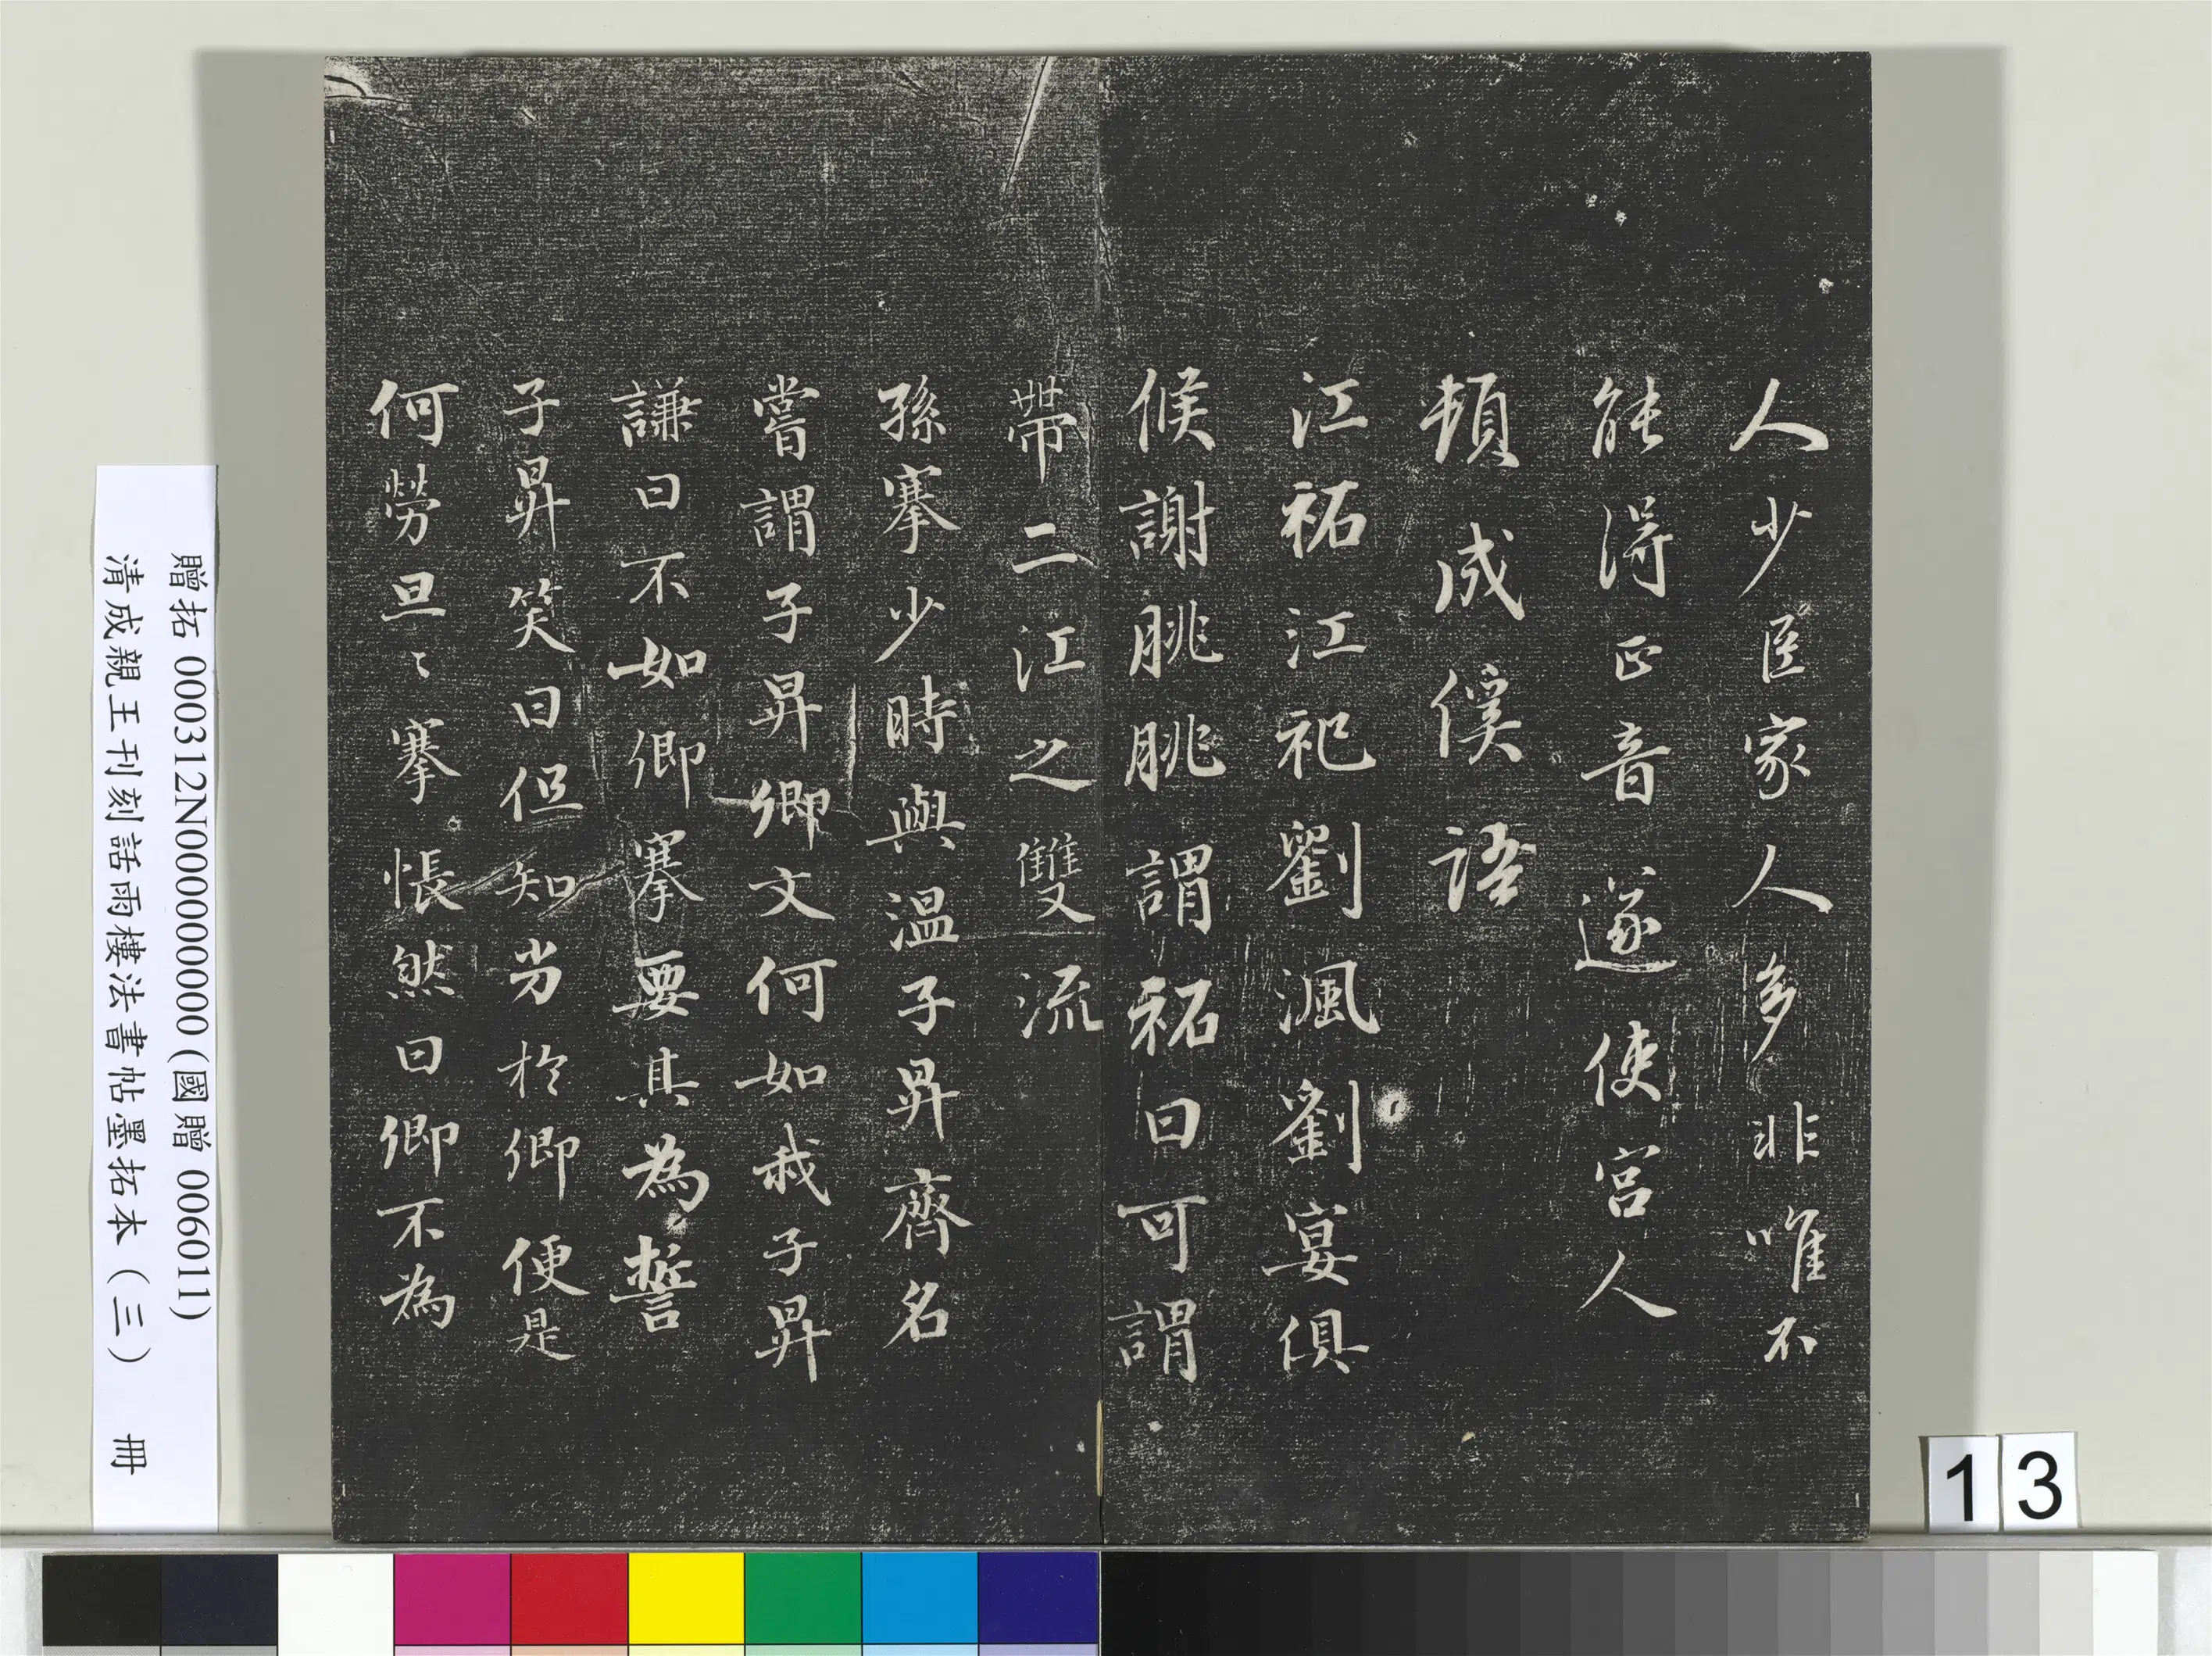 人少臣家人多非唯不
能得正音遂使宮人
頓成傒語
江祏江祀劉渢劉宴俱
候謝朓朓謂祏曰可謂
帶二江之雙流
孫搴少時與溫子昇齊名
嘗謂子昇卿文何如我子昇
謙曰不如卿搴要其為誓
子昇笑曰但知劣於卿便是
何勞旦〻搴悵然曰卿不為
贈拓 000312N000000000 (國贈 006011)
清成親王刊刻話雨樓法書帖墨拓本（三） 冊
13